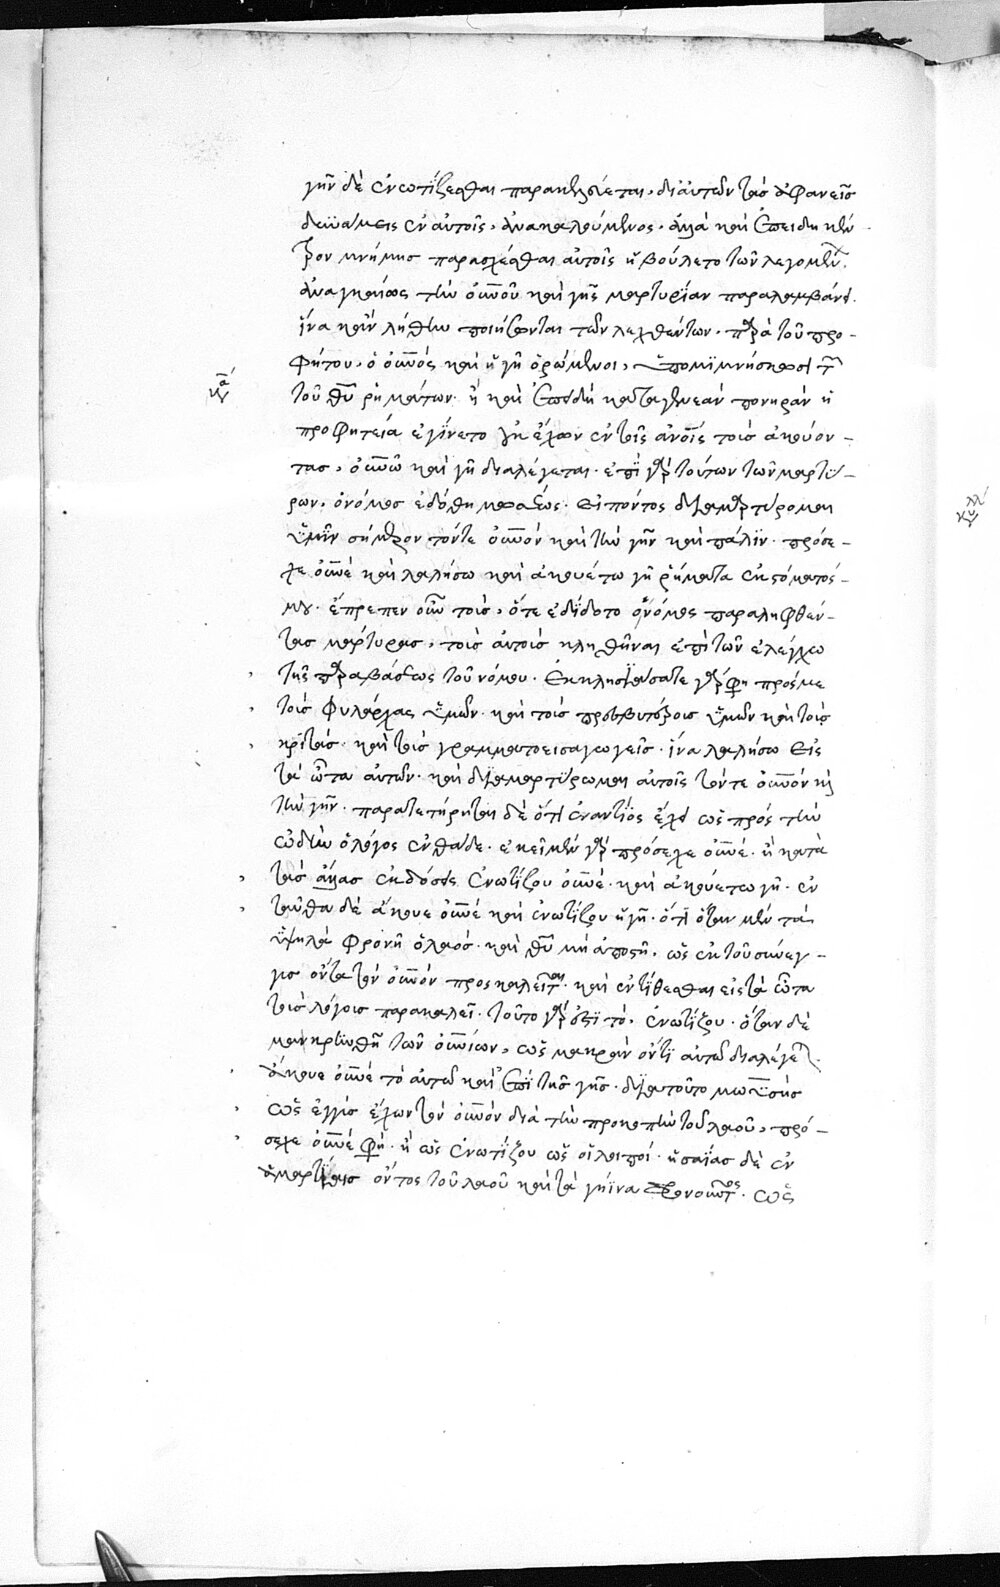 γῆν δὲ ἐνωτίζεσθαι παρακελεύεται, δι' αὐτῶν τὰς ἀφανεῖς
δυνάμεις ἐν αὐτοῖς, ἀνακαλούμενος. ἀλλὰ καὶ ἐπειδὴ κέν
τρον μνήμης παρασχέσθαι αὐτοῖς ἠβούλετο τῶν λεγομένων.
ἀναγκαίως τὴν οὐνοῦ καὶ γῆς μαρτυρίαν παραλαμβάνει.
ἵνα κἂν λήθην ποιήσωνται τῶν λεχθέντων, παρὰ τοῦ προ-
φήτου, ὁ οὐνός καὶ ἡ γῆ ὁρώμενοι, ὑπομιμνήσκωσι
τοῦ θυ ῥημάτων. ἢ καὶ ἐπειδὴ κατὰ γενεὰν πονηρὰν ἡ
προφητεία ἐγίνετο μὴ ἔχων ἐν τοῖς ἀνοις τοὺς ἀκούον-
τας, οὐνῶ καὶ γῆ διαλέγεται. ἐπὶ γὰρ τούτων τῶν μαρτύ-
ρων, ὁ νόμος ἐδόθη μωσέως. εἰπόντος διαμαρτύρομαι
ὑμῖν σήμερον τόν τε οὐνόν καὶ τὴν γῆν καὶ πάλιν. πρόσε-
χε οὐνέ καὶ λαλήσω καὶ ἀκουέτω γῆ ῥήματα ἐκ στόματός-
μου. ἔπρεπεν οὖν τοὺς, ὅτε ἐδίδοτο ὁ νόμος παραληφθέν-
τας μάρτυρας, τοὺς αὐτοὺς κληθῆναι ἐπὶ τῶν ἐλέγχω
τῆς παραβάσεως τοῦ νόμου. ἐκκλησιάσατε γάρ φη πρός με
τοὺς φυλάρχας ὑμῶν. καὶ τοὺς πρεσβυτέρους ὑμῶν καὶ τοὺς
κριτὰς. καὶ τοὺς γραμματοεισαγωγεῖς. ἵνα λαλήσω εἰς
τὰ ὦτα αὐτῶν. καὶ διαμαρτύρωμαι αὐτοῖς τόν τε οὐνόν κὶ
τὴν γῆν. παρατετήρηται δὲ ὅτι ἐναντίως ἔχει ὡς πρός τὴν
ὠδὴν ὁ λόγος ἐνθάδε. ἐκεῖ μὲν γὰρ πρόσεχε οὐνέ. ἢ κατὰ
τὰς ἄλλας ἐκδόσεις ἐνωτίζου οὐνέ. καὶ ἀκουέτω γῆ. ἐν
ταῦθα δὲ ἄκουε οὐνέ καὶ ἐνωτίζου ἡ γῆ. ὅτι ὅταν μὲν τὰ
ὑψηλὰ φρονῆ ὁ λαός. καὶ θυ μὴ ἀποστῆ, ὡς ἐκ τοῦ σύνεγ-
γυς ὄντα τὸν οὐνόν προσκαλεῖται. καὶ ἐντίθεσθαι εἰς τὰ ὦτα
τοὺς λόγους παρακαλεῖ. τοῦτο γὰρ ἐστι τὸ, ἐνωτίζου. ὅταν δὲ
μακρυνθῆ τῶν οὐνίων, ὡς μακρὰν ὄντι αὐτῶ διαλέγεται.
ἄκουε οὐνέ τὸ αὐτὸ καὶ ἐπὶ τῆς γῆς. διὰ τοῦτο μωϋσῆς
ὡς ἐγγὺς ἔχων τὸν οὐνόν διὰ τὴν προκοπὴν τοῦ λαοῦ, πρό-
σεχε οὐνέ φη. ἢ ὡς ἐνωτίζου ὡς οἱ λοιποί. ἡσαΐας δὲ ἐν
ἁμαρτίαις ὄντος τοῦ λαοῦ καὶ τὰ γήϊνα φρονοῦντος. ὡς